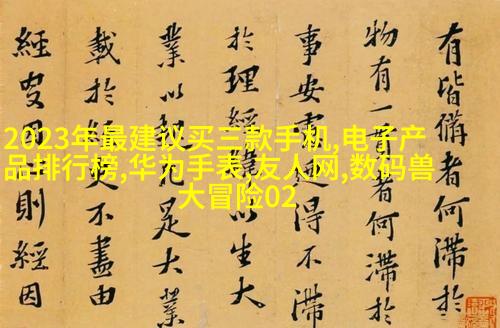 2023年最建议买三款手机,电子产
品排行榜,华为手表,友人网,数码兽
大冒险02
有皆備者何滯於
物有一者何滯於
事安得不滯
於理經以生大
業以是大業
載於不盡由
經則經因